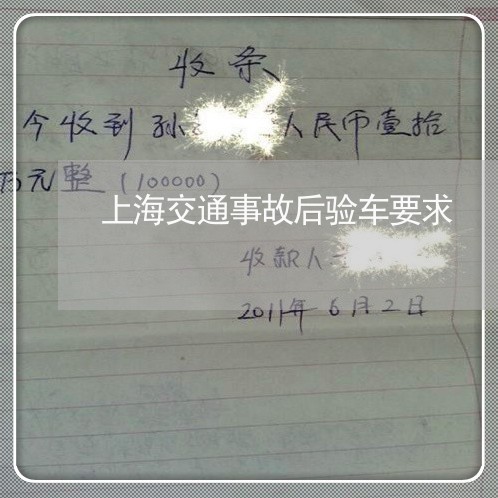 收条
今收到孙 人民币壹拾
万元整（100000）
上海交通事故后验车要求
收款人
2011年6月2日